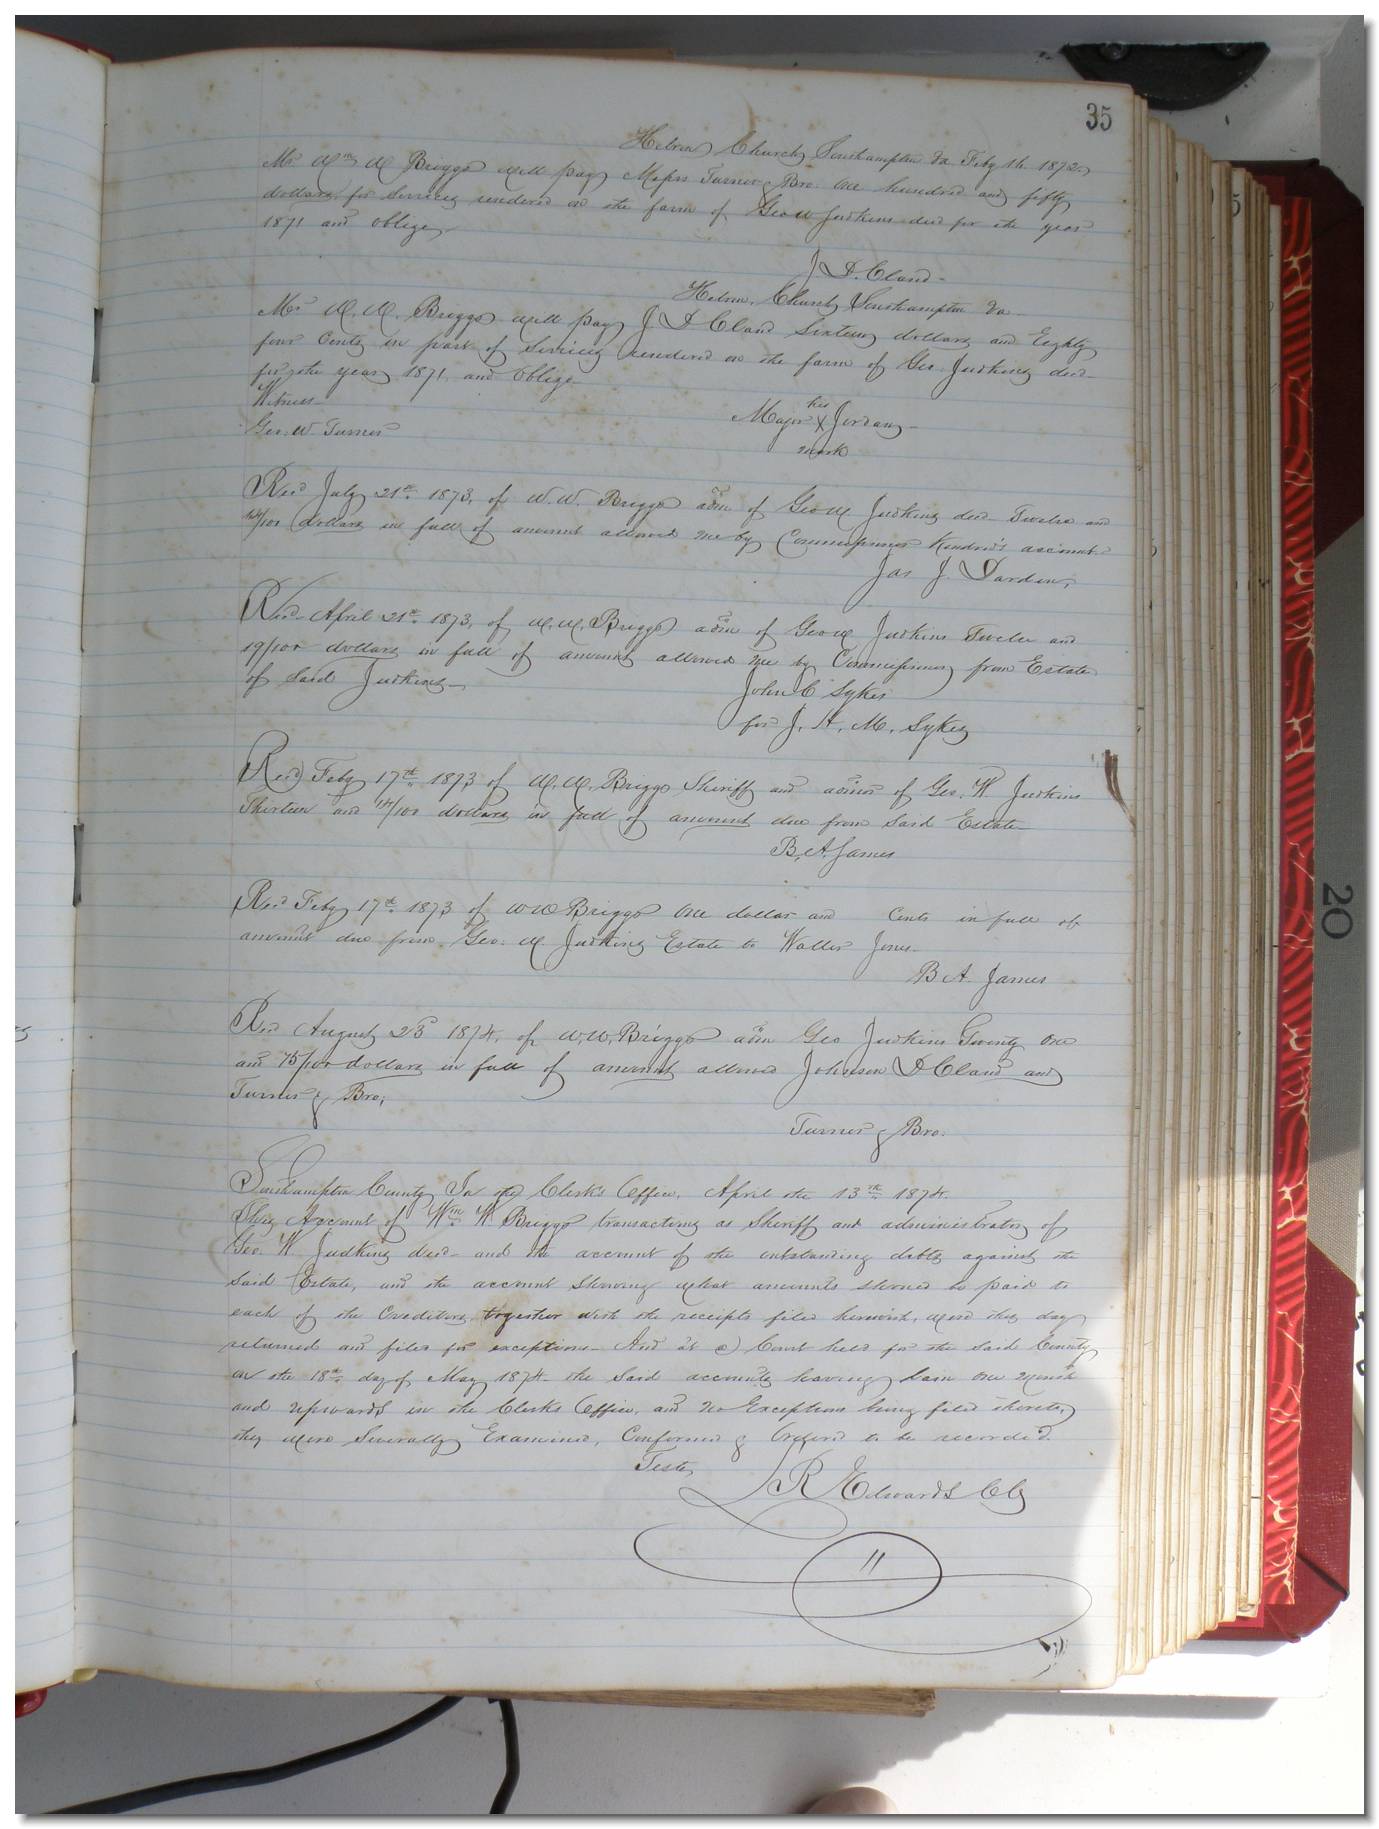 35
Hebron Church Southampton Va Feby 16. 1872.
Mr Wm W Briggs will pay Messrs Turner & Bro. One hundred and fifty
dollars for Services rendered on the farm of Geo W Judkins decd for the year
1871 and oblige
J D. Cland-
Hebron. Church Southampton Va.
Mr W. W. Briggs will pay J D Cland Sixteen dollars and Eighty
four Cents in part of Services rendered on the farm of Geo. Judkins decd-
for the year 1871, and Oblige-
Witness-
his
Major X Jordan-
Geo. W Turner
mark
Recd July 21st. 1873, of W. W. Briggs adm of Geo W Judkins decd Twelve and
/100 dollars in full of amount allowed me by Commissioner Kindred's account-
Jas J. Darden,
Recd- April 21st. 1873, of W. W. Briggs adm of Geo W Judkins Twelve and
19/100 dollars in full of amount allowed me by Commissioner from Estate
of Said Judkins-
John C Sykes
for J. H. M. Sykes
Recd Feby 17th 1873 of W. W. Briggs Sheriff and admor of Geo. W Judkins
Thirteen and 14/100 dollars in full of amount due from Said Estate-
B. A. James
Recd Feby 17th. 1873 of W W Briggs One dollar and Cents in full of
amount due from Geo. W Judkins Estate to Waller Jones-
B A. James
Recd August 23d 1874, of W. W. Briggs adm Geo Judkins Twenty One
and 75/100 dollars in full of amount allowed Johnson D Cland and
Turner & Bro,
Turner & Bro.
Southampton County In the Clerk's Office, April the 13th. 1874.
This Account of Wm W Briggs transacting as Sheriff and administrator of
Geo. W Judkins decd- and the account of the outstanding debts against the
Said Estate, and the account Showing what amounts should be paid to
each of the Creditors together with the receipts filed herewith, were this day
returned and filed for exceptions- And at a Court held for the Said County
on the 18th. day of May 1874- the Said accounts having lain One Month
and upwards in the Clerks Office, and no Exceptions being filed thereto,
they were Severally Examined, Confirmed & Ordered to be recorded.
Teste,
J R Edwards Clk
"
20